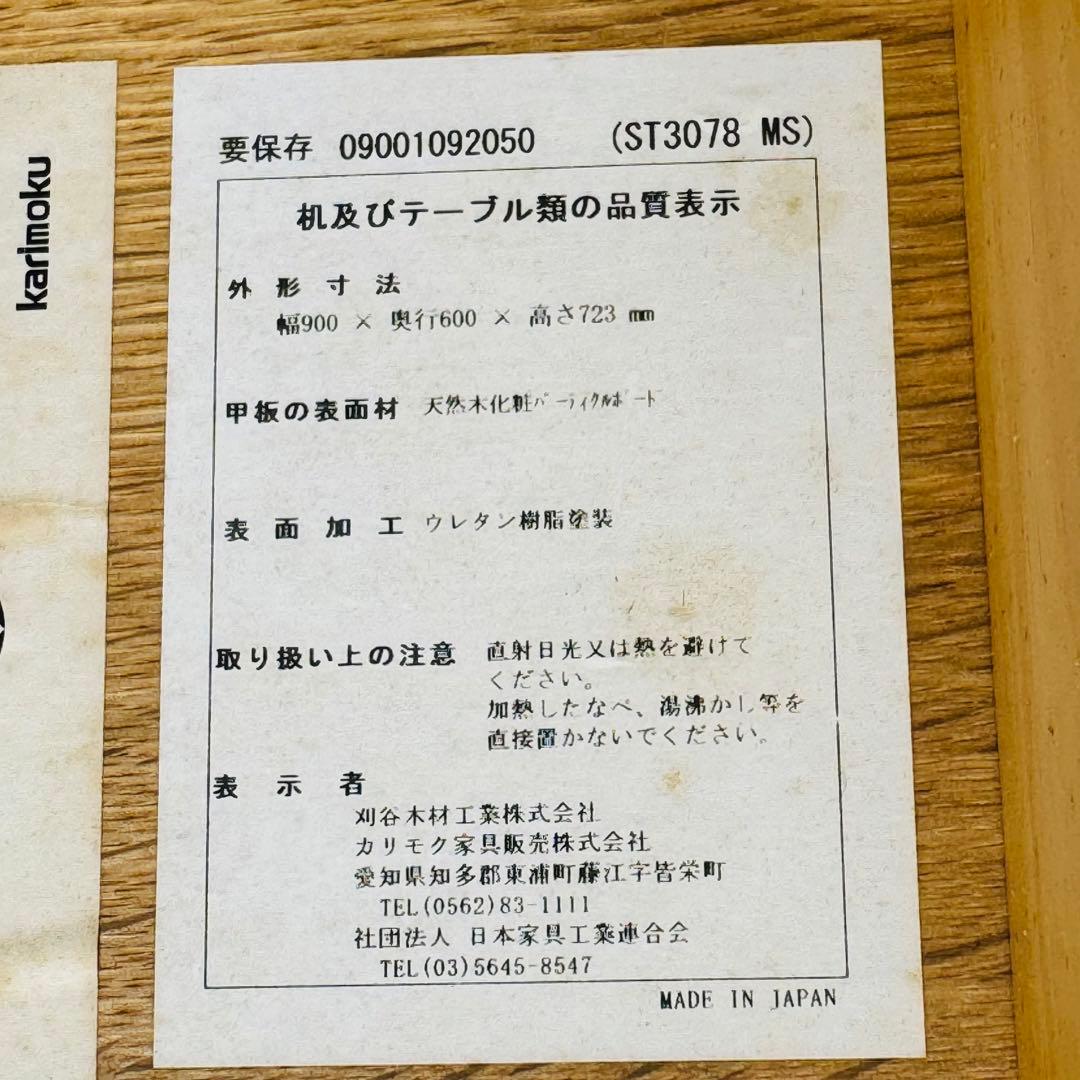 karimoku
要保存 09001092050 (ST3078 MS)
机及びテーブル類の品質表示
外形寸法
幅900 × 奥行600 × 高さ723 mm
甲板の表面材 天然木化粧パーティクルボード
表面加工 ウレタン樹脂塗装
取り扱い上の注意 直射日光又は熱を避けて
ください。
加熱したなべ、湯沸かし等を
直接置かないでください。
表示者
刈谷木材工業株式会社
カリモク家具販売株式会社
愛知県知多郡東浦町藤江字皆栄町
TEL(0562)83-1111
社団法人 日本家具工業連合会
TEL(03)5645-8547
MADE IN JAPAN